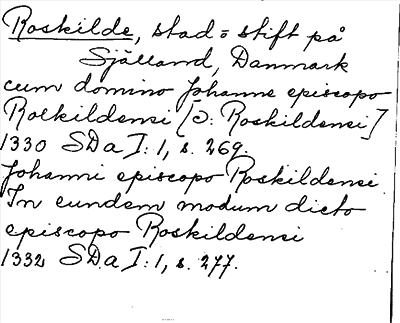 Roskilde, stad = stift på
Själland, Danmark
cum domino Johanne episcopo
Rolkildensi [ɔ: Roskildensi]
1330 SDa I: 1, s. 269.
Johanni episcopo Roskildensi
In eundem modum dicto
episcopo Roskildensi
1332 SDa I: 1, s. 277.